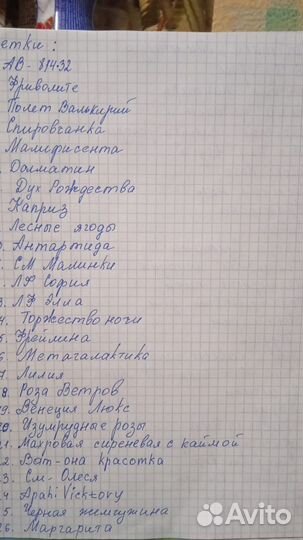 етки:
АВ - 814.32
Фриволите
Полет Валькирий
Спировчанка
Малифисента
Далматин
Дух Рождества
Каприз
Лесные ягоды
Антартида
СМ Малинки
ЛФ София
3. ЛФ Элла
4. Торжество ночи
5. Фрейлина
6. Метагалактика
7. Лилия
8. Роза Ветров
19. Венеция Люкс
20. Изумрудные розы
21. Махровая сиреневая с каймой
2. Вот-она красотка
3. См- Олеся
4 Apahi Vicktory
5. Черная жемчужина
26. Маргарита
Avito